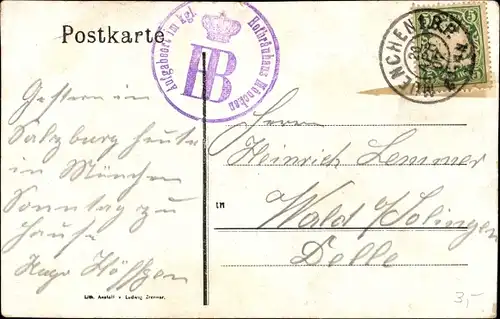 Postkarte
Aufgabeort im kgl. Hofbräuhaus Muenchen
HB
MUENCHEN
5
Gestern in
Salzburg heute
in München
Sonntag zu
Hause
Hugo
Herrn
Heinrich Lemmer
in
Wald / Solingen
Delle
Lith. Anstalt v. Ludwig
3,-